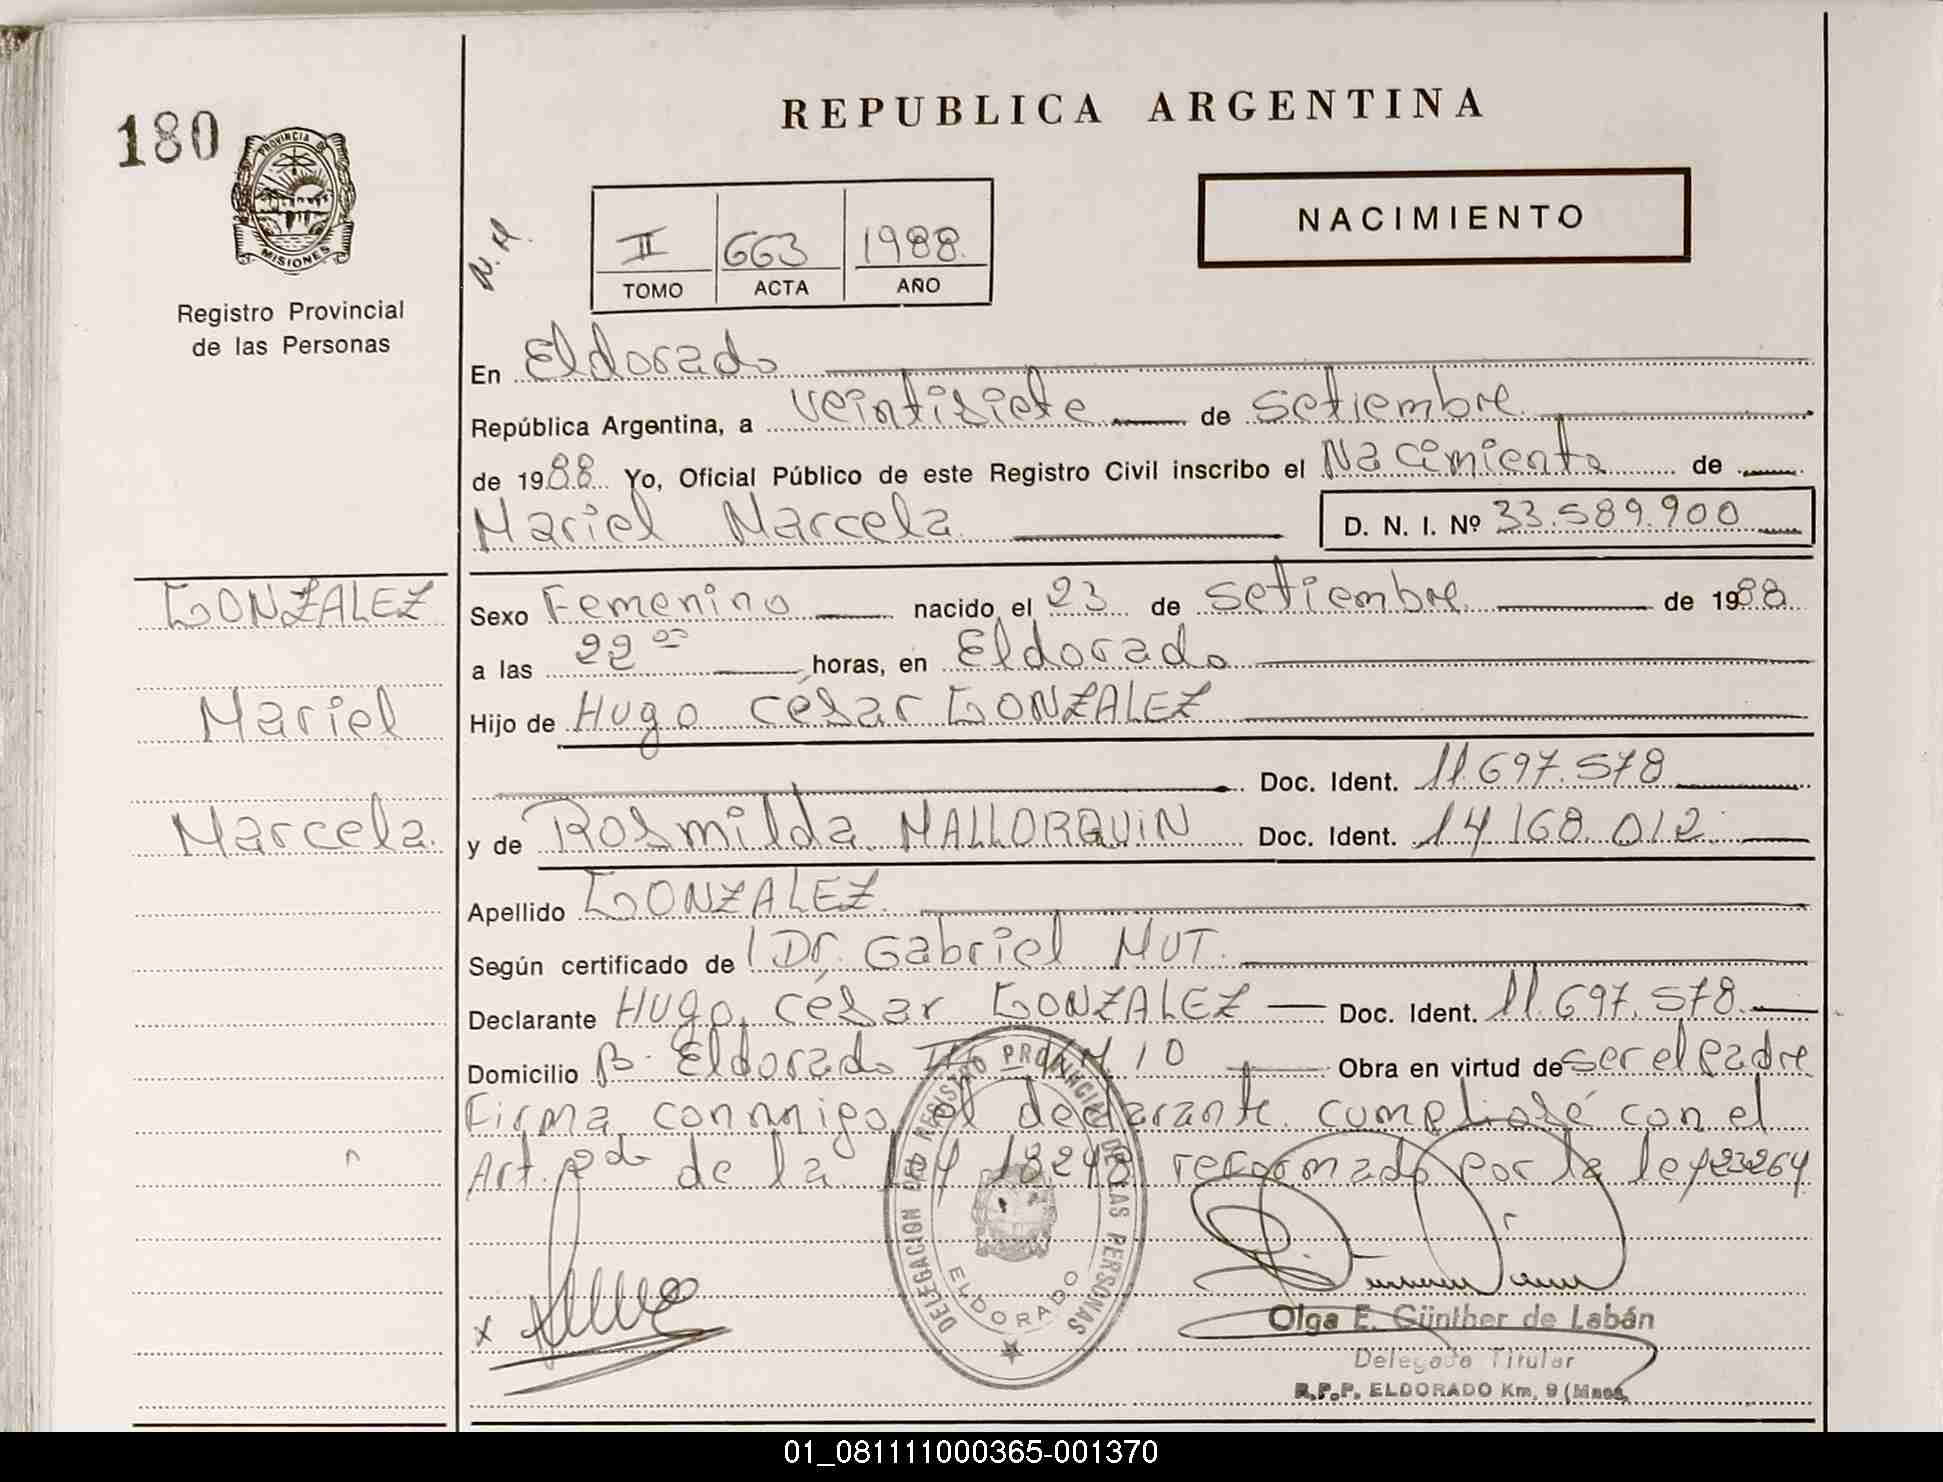 180
PROVINCIA DE
MISIONES
Registro Provincial
de las Personas
REPUBLICA ARGENTINA
NACIMIENTO
N.A.
II 663 1988.
TOMO ACTA AÑO
En Eldorado
República Argentina, a veintisiete de setiembre
de 1988 Yo, Oficial Público de este Registro Civil inscribo el Nacimiento de
Mariel Marcela D. N. I. Nº 33.589.900
GONZALEZ
Mariel
Marcela.
Sexo Femenino nacido el 23 de setiembre de 1988
a las 22 00 horas, en Eldorado
Hijo de Hugo César GONZALEZ
Doc. Ident. 11.697.578
y de Rosmilda MALLORQUIN Doc. Ident. 14.168.012
Apellido GONZALEZ
Según certificado de Dr. Gabriel MUT.
Declarante Hugo César GONZALEZ Doc. Ident. 11.697.578
Domicilio B. Eldorado KM 10 Obra en virtud de ser el padre
Firma conmigo el declarante. cumplirse con el
Art. 2do de la Ley 18248 reformado por la ley 23264
DELEGACION DEL REGISTRO PROVINCIAL DE LAS PERSONAS
ELDORADO
x
Olga E. Günther de Labán
Delegada Titular
R.P.P. ELDORADO Km. 9 (Mnes.
01_081111000365-001370